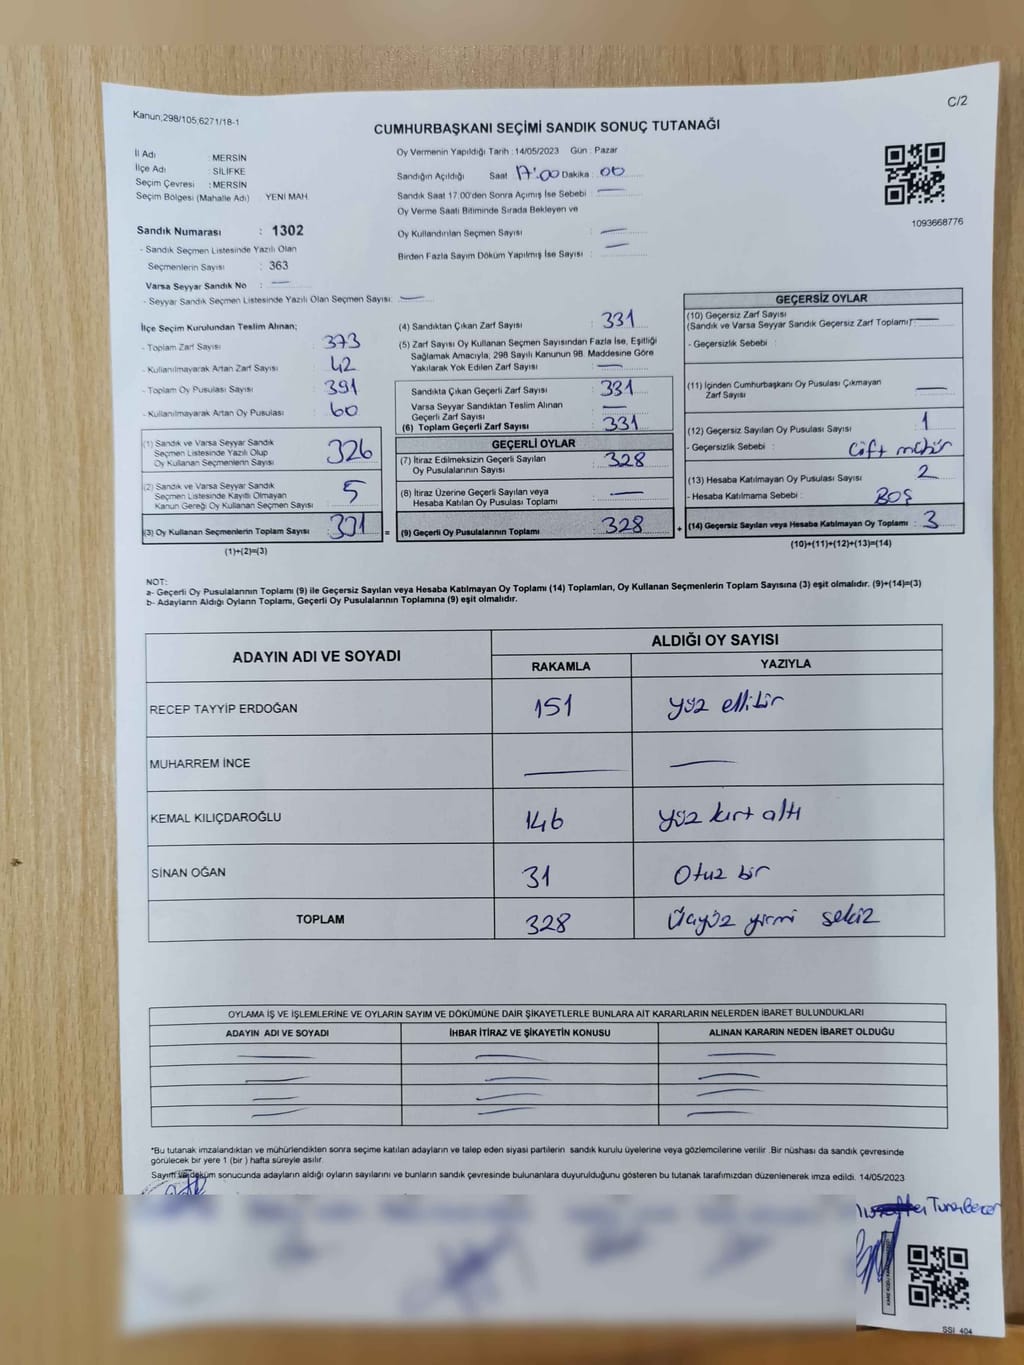 Kanun;298/105;6271/18-1
C/2
CUMHURBAŞKANI SEÇİMİ SANDIK SONUÇ TUTANAĞI
İl Adı : MERSİN
İlçe Adı : SİLİFKE
Seçim Çevresi : MERSİN
Seçim Bölgesi (Mahalle Adı) YENİ MAH.
Oy Vermenin Yapıldığı Tarih : 14/05/2023 Gün : Pazar
Sandığın Açıldığı Saat 17:00 Dakika : 00
Sandık Saat 17:00'den Sonra Açımış İse Sebebi : —
Oy Verme Saati Bitiminde Sırada Bekleyen ve
Oy Kullandırılan Seçmen Sayısı : —
Birden Fazla Sayım Döküm Yapılmış İse Sayısı : —
1093668776
Sandık Numarası : 1302
- Sandık Seçmen Listesinde Yazılı Olan
Seçmenlerin Sayısı : 363
Varsa Seyyar Sandık No : —
- Seyyar Sandık Seçmen Listesinde Yazılı Olan Seçmen Sayısı: —
İlçe Seçim Kurulundan Teslim Alınan;
- Toplam Zarf Sayısı : 373
- Kullanılmayarak Artan Zarf Sayısı : 42
- Toplam Oy Pusulası Sayısı : 391
- Kullanılmayarak Artan Oy Pusulası : 60
(1) Sandık ve Varsa Seyyar Sandık
Seçmen Listesinde Yazılı Olup
Oy Kullanan Seçmenlerin Sayısı : 326
(2) Sandık ve Varsa Seyyar Sandık
Seçmen Listesinde Kayıtlı Olmayan
Kanun Gereği Oy Kullanan Seçmen Sayısı : 5
(3) Oy Kullanan Seçmenlerin Toplam Sayısı : 331
(1)+(2)=(3)
=
(4) Sandıktan Çıkan Zarf Sayısı : 331
(5) Zarf Sayısı Oy Kullanan Seçmen Sayısından Fazla İse, Eşitliği
Sağlamak Amacıyla; 298 Sayılı Kanunun 98. Maddesine Göre
Yakılarak Yok Edilen Zarf Sayısı : —
Sandıkta Çıkan Geçerli Zarf Sayısı : 331
Varsa Seyyar Sandıktan Teslim Alınan
Geçerli Zarf Sayısı : —
(6) Toplam Geçerli Zarf Sayısı : 331
GEÇERLİ OYLAR
(7) İtiraz Edilmeksizin Geçerli Sayılan
Oy Pusulalarının Sayısı : 328
(8) İtiraz Üzerine Geçerli Sayılan veya
Hesaba Katılan Oy Pusulası Toplamı : —
(9) Geçerli Oy Pusulalarının Toplamı : 328
+
GEÇERSİZ OYLAR
(10) Geçersiz Zarf Sayısı
(Sandık ve Varsa Seyyar Sandık Geçersiz Zarf Toplamı): —
- Geçersizlik Sebebi :
(11) İçinden Cumhurbaşkanı Oy Pusulası Çıkmayan
Zarf Sayısı : —
(12) Geçersiz Sayılan Oy Pusulası Sayısı : 1
- Geçersizlik Sebebi : Çift mühür
(13) Hesaba Katılmayan Oy Pusulası Sayısı : 2
- Hesaba Katılmama Sebebi : BOŞ
(14) Geçersiz Sayılan veya Hesaba Katılmayan Oy Toplamı : 3
(10)+(11)+(12)+(13)=(14)
NOT:
a- Geçerli Oy Pusulalarının Toplamı (9) ile Geçersiz Sayılan veya Hesaba Katılmayan Oy Toplamı (14) Toplamları, Oy Kullanan Seçmenlerin Toplam Sayısına (3) eşit olmalıdır. (9)+(14)=(3)
b- Adayların Aldığı Oyların Toplamı, Geçerli Oy Pusulalarının Toplamına (9) eşit olmalıdır.
ADAYIN ADI VE SOYADI ALDIĞI OY SAYISI
RAKAMLA YAZIYLA
RECEP TAYYİP ERDOĞAN 151 yüz ellibir
MUHARREM İNCE — —
KEMAL KILIÇDAROĞLU 146 yüz kırk altı
SİNAN OĞAN 31 Otuz bir
TOPLAM 328 Üçyüz yirmi sekiz
OYLAMA İŞ VE İŞLEMLERİNE VE OYLARIN SAYIM VE DÖKÜMÜNE DAİR ŞİKAYETLERLE BUNLARA AİT KARARLARIN NELERDEN İBARET BULUNDUKLARI
ADAYIN ADI VE SOYADI İHBAR İTİRAZ VE ŞİKAYETİN KONUSU ALINAN KARARIN NEDEN İBARET OLDUĞU
— — —
— — —
— — —
— — —
*Bu tutanak imzalandıktan ve mühürlendikten sonra seçime katılan adayların ve talep eden siyasi partilerin sandık kurulu üyelerine veya gözlemcilerine verilir .Bir nüshası da sandık çevresinde
görülecek bir yere 1 (bir ) hafta süreyle asılır.
Sayım ve döküm sonucunda adayların aldığı oyların sayılarını ve bunların sandık çevresinde bulunanlara duyurulduğunu gösteren bu tutanak tarafımızdan düzenlenerek imza edildi. 14/05/2023
SSI_404